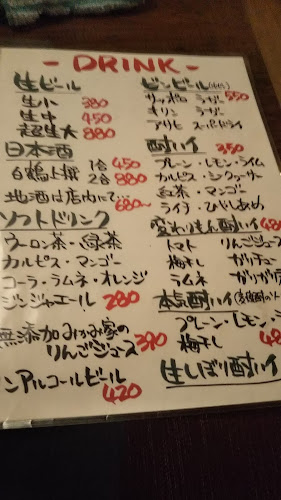 - DRINK -
生ビール
生小 380
生中 450
超生大 880
日本酒
白鶴上撰 1合 450
2合 880
地酒は店内にて… 680～
ソフトドリンク
ウーロン茶・緑茶
カルピス・マンゴー
コーラ・ラムネ・オレンジ
ジンジャエール 280
無添加みかみ家の
りんごジュース 390
ノンアルコールビール
420
ビンビール(中びん)
サッポロ ラガー 550
キリン ラガー
アサヒ スーパードライ
酎ハイ 350
プレーン・レモン・ライム
カルピス・シークヮーサー
紅茶・マンゴー
ライチ・ひやしあめ
変わりもん酎ハイ 480
トマト りんごジュース
梅干し ガリチュー
ラムネ ガリガリ
本気酎ハイ
プレーン・レモン・
梅干し 48
生しぼり酎ハイ